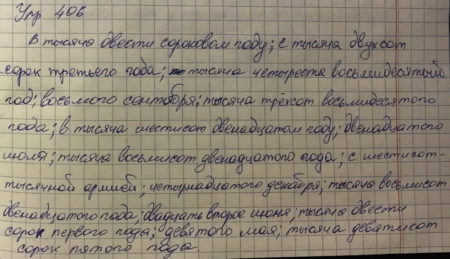 Упр 406
В тысяча двести сороковом году; с тысяча двухсот
сорок третьего года; тысяча четыреста восьмидесятый
год; восьмого сентября; тысяча трёхсот восьмидесятого
года; в тысяча шестисот двенадцатом году; двенадцатого
июля; тысяча восьмисот двенадцатого года; с шестисот-
тысячной армией; четырнадцатого декабря; тысяча восьмисот
двенадцатого года, двадцать второе июня; тысяча двести
сорок первого года; девятого мая; тысяча девятисот
сорок пятого года